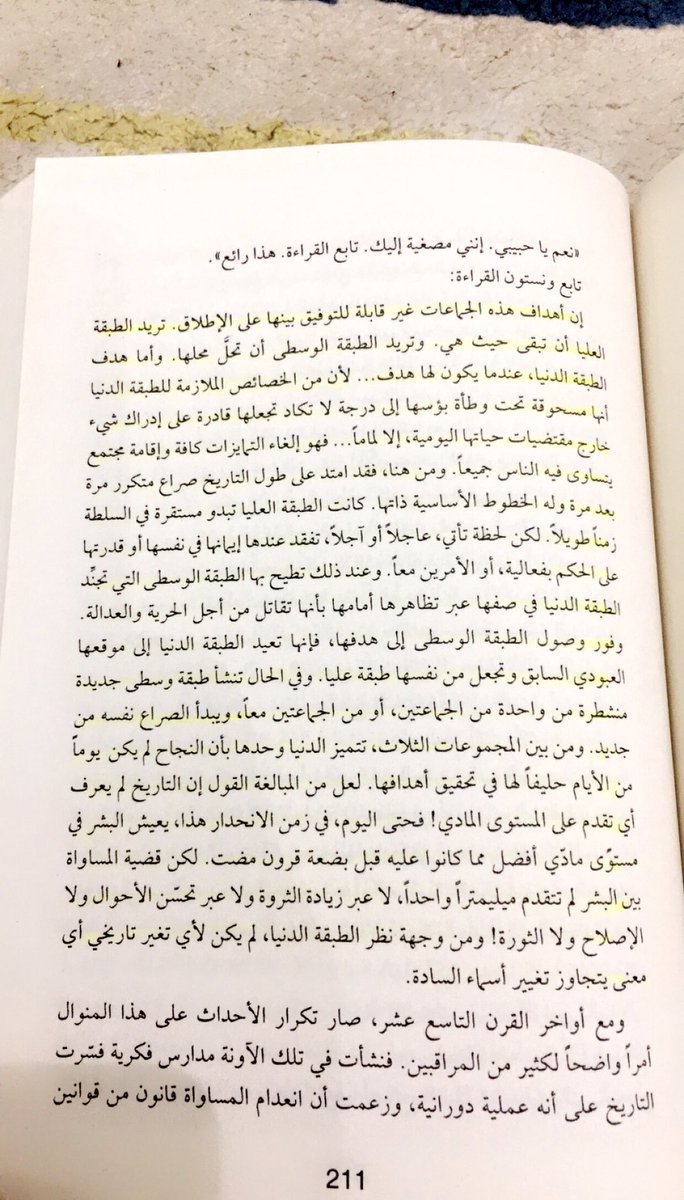 «نعم يا حبيبي. إنني مصغية إليك. تابع القراءة. هذا رائع».
تابع ونستون القراءة:
إن أهداف هذه الجماعات غير قابلة للتوفيق بينها على الإطلاق. تريد الطبقة
العليا أن تبقى حيث هي. وتريد الطبقة الوسطى أن تحلَّ محلها. وأما هدف
الطبقة الدنيا، عندما يكون لها هدف... لأن من الخصائص الملازمة للطبقة الدنيا
أنها مسحوقة تحت وطأة بؤسها إلى درجة لا تكاد تجعلها قادرة على إدراك شيء
خارج مقتضيات حياتها اليومية، إلا لماماً... فهو إلغاء التمايزات كافة وإقامة مجتمع
يتساوى فيه الناس جميعاً. ومن هنا، فقد امتد على طول التاريخ صراع متكرر مرة
بعد مرة وله الخطوط الأساسية ذاتها. كانت الطبقة العليا تبدو مستقرة في السلطة
زمناً طويلاً. لكن لحظة تأتي، عاجلاً أو آجلاً، تفقد عندها إيمانها في نفسها أو قدرتها
على الحكم بفعالية، أو الأمرين معاً. وعند ذلك تطيح بها الطبقة الوسطى التي تجنِّد
الطبقة الدنيا في صفها عبر تظاهرها أمامها بأنها تقاتل من أجل الحرية والعدالة.
وفور وصول الطبقة الوسطى إلى هدفها، فإنها تعيد الطبقة الدنيا إلى موقعها
العبودي السابق وتجعل من نفسها طبقة عليا. وفي الحال تنشأ طبقة وسطى جديدة
منشطرة من واحدة من الجماعتين، أو من الجماعتين معاً، ويبدأ الصراع نفسه من
جديد. ومن بين المجموعات الثلاث، تتميز الدنيا وحدها بأن النجاح لم يكن يوماً
من الأيام حليفاً لها في تحقيق أهدافها. لعل من المبالغة القول إن التاريخ لم يعرف
أي تقدم على المستوى المادي! فحتى اليوم، في زمن الانحدار هذا، يعيش البشر في
مستوًى مادّي أفضل مما كانوا عليه قبل بضعة قرون مضت. لكن قضية المساواة
بين البشر لم تتقدم ميليمتراً واحداً، لا عبر زيادة الثروة ولا عبر تحسّن الأحوال ولا
الإصلاح ولا الثورة! ومن وجهة نظر الطبقة الدنيا، لم يكن لأي تغير تاريخي أي
معنى يتجاوز تغيير أسماء السادة.
ومع أواخر القرن التاسع عشر، صار تكرار الأحداث على هذا المنوال
أمراً واضحاً لكثير من المراقبين. فنشأت في تلك الآونة مدارس فكرية فسّرت
التاريخ على أنه عملية دورانية، وزعمت أن انعدام المساواة قانون من قوانين
211